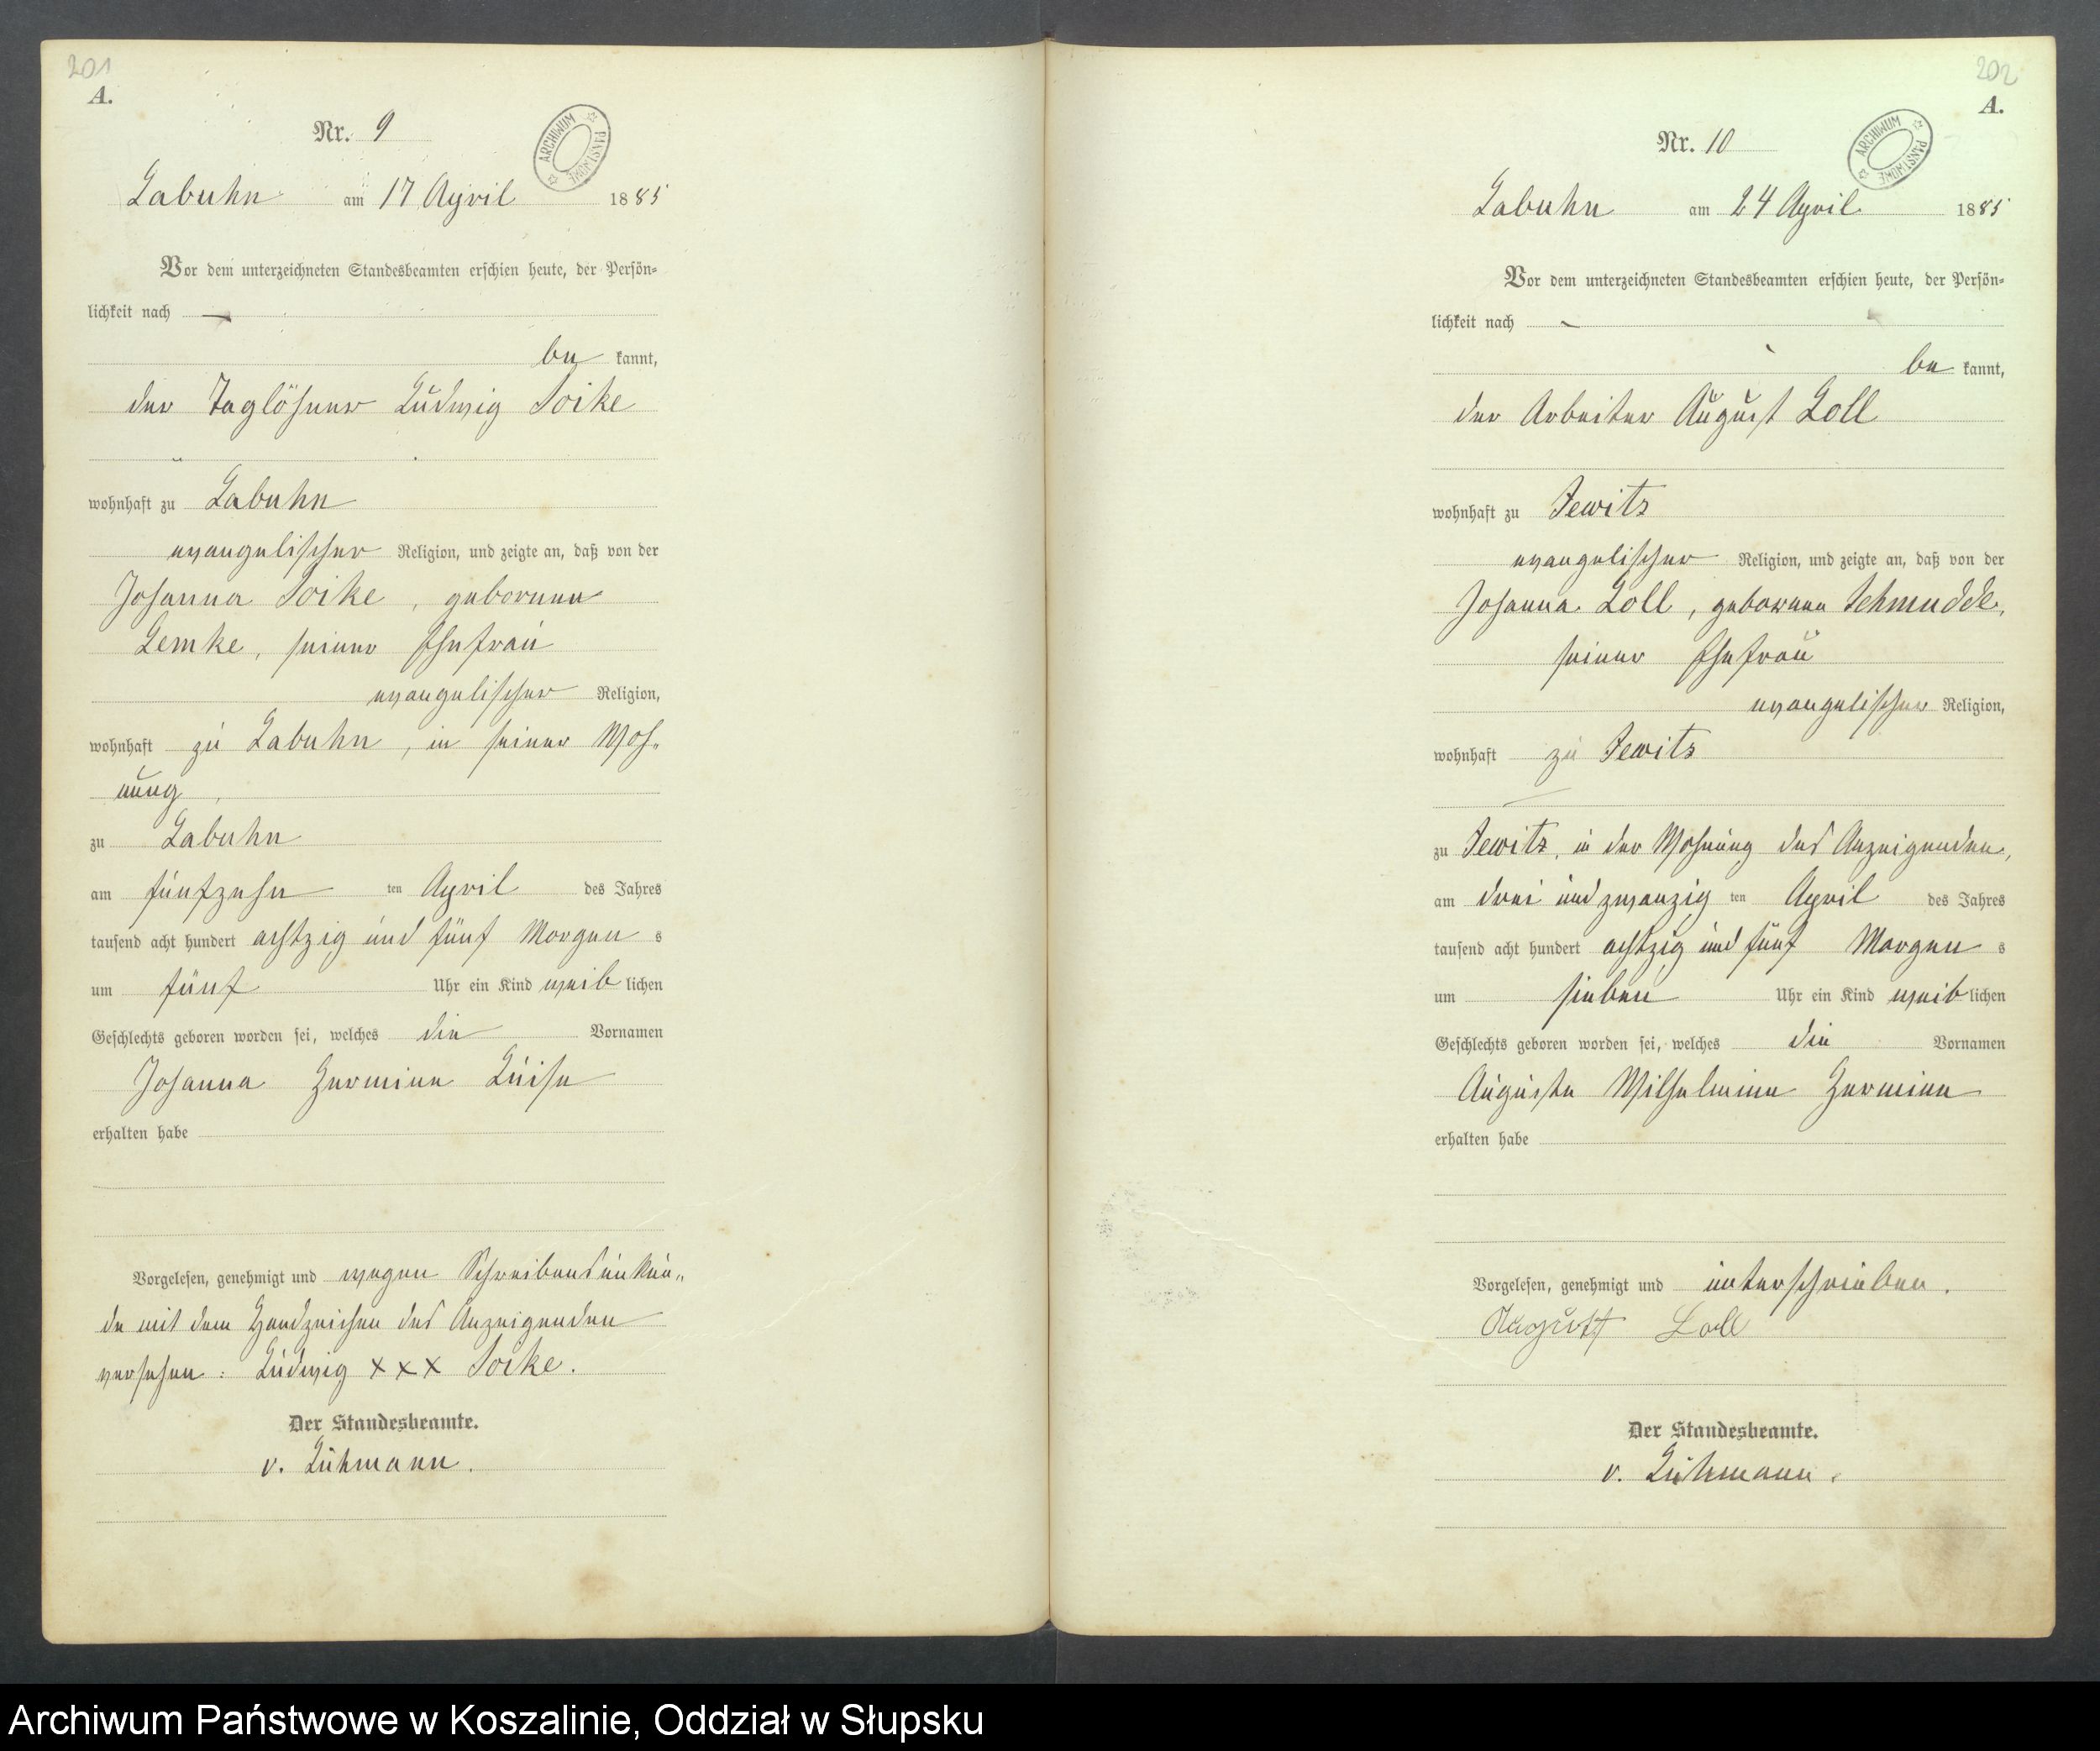 201
A.
Nr. 9
ARCHIWUM PAŃSTWOWE
Labuhn am 17 April 1885
Vor dem unterzeichneten Standesbeamten erschien heute, der Persön=
lichkeit nach —
be kannt,
der Taglöhner Ludwig Soike
wohnhaft zu Labuhn
evangelischer Religion, und zeigte an, daß von der
Johanna Soike, geborenen
Lemke, seiner Ehefrau
evangelischer Religion,
wohnhaft zu Labuhn, in seiner Woh-
nung,
zu Labuhn
am fünfzehn ten April des Jahres
tausend acht hundert achtzig und fünf Morgen s
um fünf Uhr ein Kind weib lichen
Geschlechts geboren worden sei, welches die Vornamen
Johanna Hermine Luise
erhalten habe
Vorgelesen, genehmigt und wegen Schreibensunkun„
de mit dem Handzeichen des Anzeigenden
versehen: Ludwig xxx Soike.
Der Standesbeamte.
v. Lühmann.
202
A.
Nr. 10
ARCHIWUM PAŃSTWOWE
Labuhn am 24 April 1885
Vor dem unterzeichneten Standesbeamten erschien heute, der Persön=
lichkeit nach —
be kannt,
der Arbeiter August Loll
wohnhaft zu Jewitz
evangelischer Religion, und zeigte an, daß von der
Johanna Loll, geborenen Schmudde,
seiner Ehefrau
evangelischer Religion,
wohnhaft zu Jewitz
zu Jewitz, in der Wohnung des Anzeigenden,
am drei und zwanzig ten April des Jahres
tausend acht hundert achtzig und fünf Morgen s
um sieben Uhr ein Kind weib lichen
Geschlechts geboren worden sei, welches die Vornamen
Auguste Wilhelmine Hermine
erhalten habe
Vorgelesen, genehmigt und unterschrieben.
August Loll
Der Standesbeamte.
v. Lühmann.
Archiwum Państwowe w Koszalinie, Oddział w Słupsku